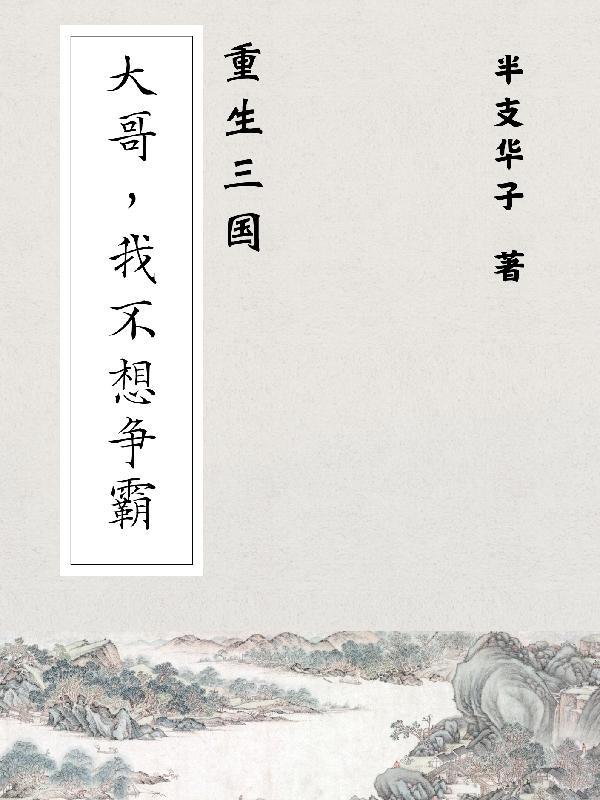 重生三国
大哥，我不想争霸
半支华子 著